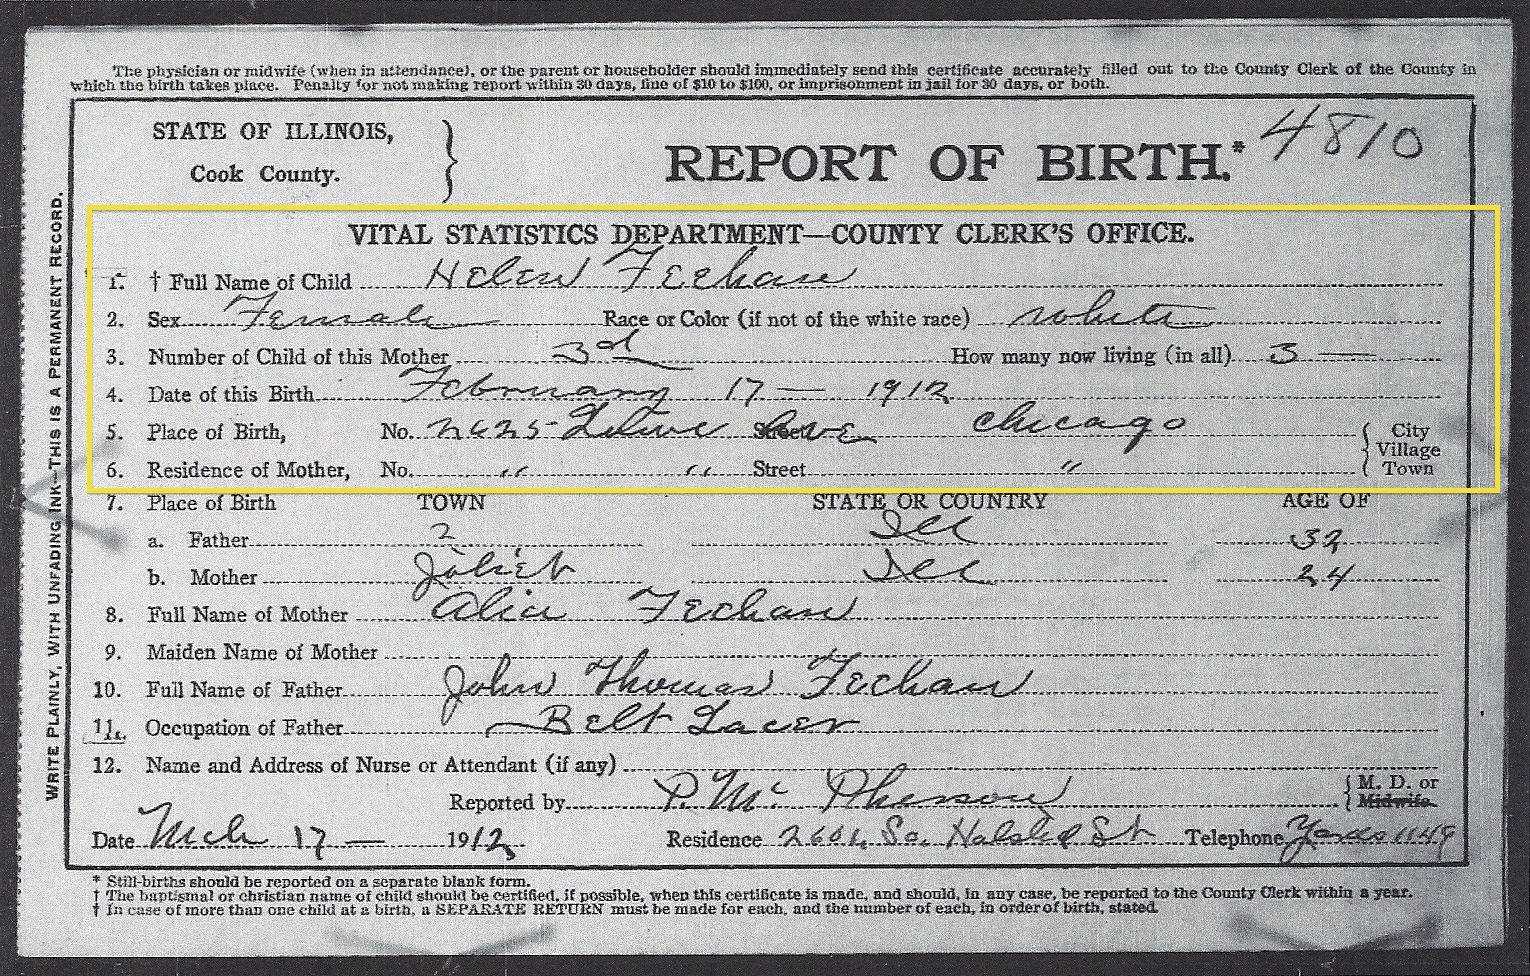 The physician or midwife (when in attendance), or the parent or householder should immediately send this certificate accurately filled out to the County Clerk of the County in
which the birth takes place. Penalty for not making report within 30 days, fine of $10 to $100, or imprisonment in jail for 30 days, or both.
STATE OF ILLINOIS,
Cook County.
REPORT OF BIRTH.* 4810
VITAL STATISTICS DEPARTMENT—COUNTY CLERK'S OFFICE.
1. † Full Name of Child Helen Feehan
2. Sex Female Race or Color (if not of the white race) white
3. Number of Child of this Mother 3rd How many now living (in all) 3
4. Date of this Birth February 17 — 1912
5. Place of Birth, No. 2625 Lowe Street Ave Chicago City
Village
6. Residence of Mother, No. " " Street " Town
7. Place of Birth TOWN STATE OR COUNTRY AGE OF
a. Father ? Ill 32
b. Mother Joliet Ill 24
8. Full Name of Mother Alice Feehan
9. Maiden Name of Mother
10. Full Name of Father John Thomas Feehan
11. Occupation of Father Belt Lacer
12. Name and Address of Nurse or Attendant (if any)
Reported by P. Mc Pherson M. D. or
Midwife.
Date Mch 17 — 1912 Residence 2606 So. Halsted St Telephone Yards 1149
* Still-births should be reported on a separate blank form.
† The baptismal or christian name of child should be certified, if possible, when this certificate is made, and should, in any case, be reported to the County Clerk within a year.
† In case of more than one child at a birth, a SEPARATE RETURN must be made for each, and the number of each, in order of birth, stated.
WRITE PLAINLY, WITH UNFADING INK—THIS IS A PERMANENT RECORD.